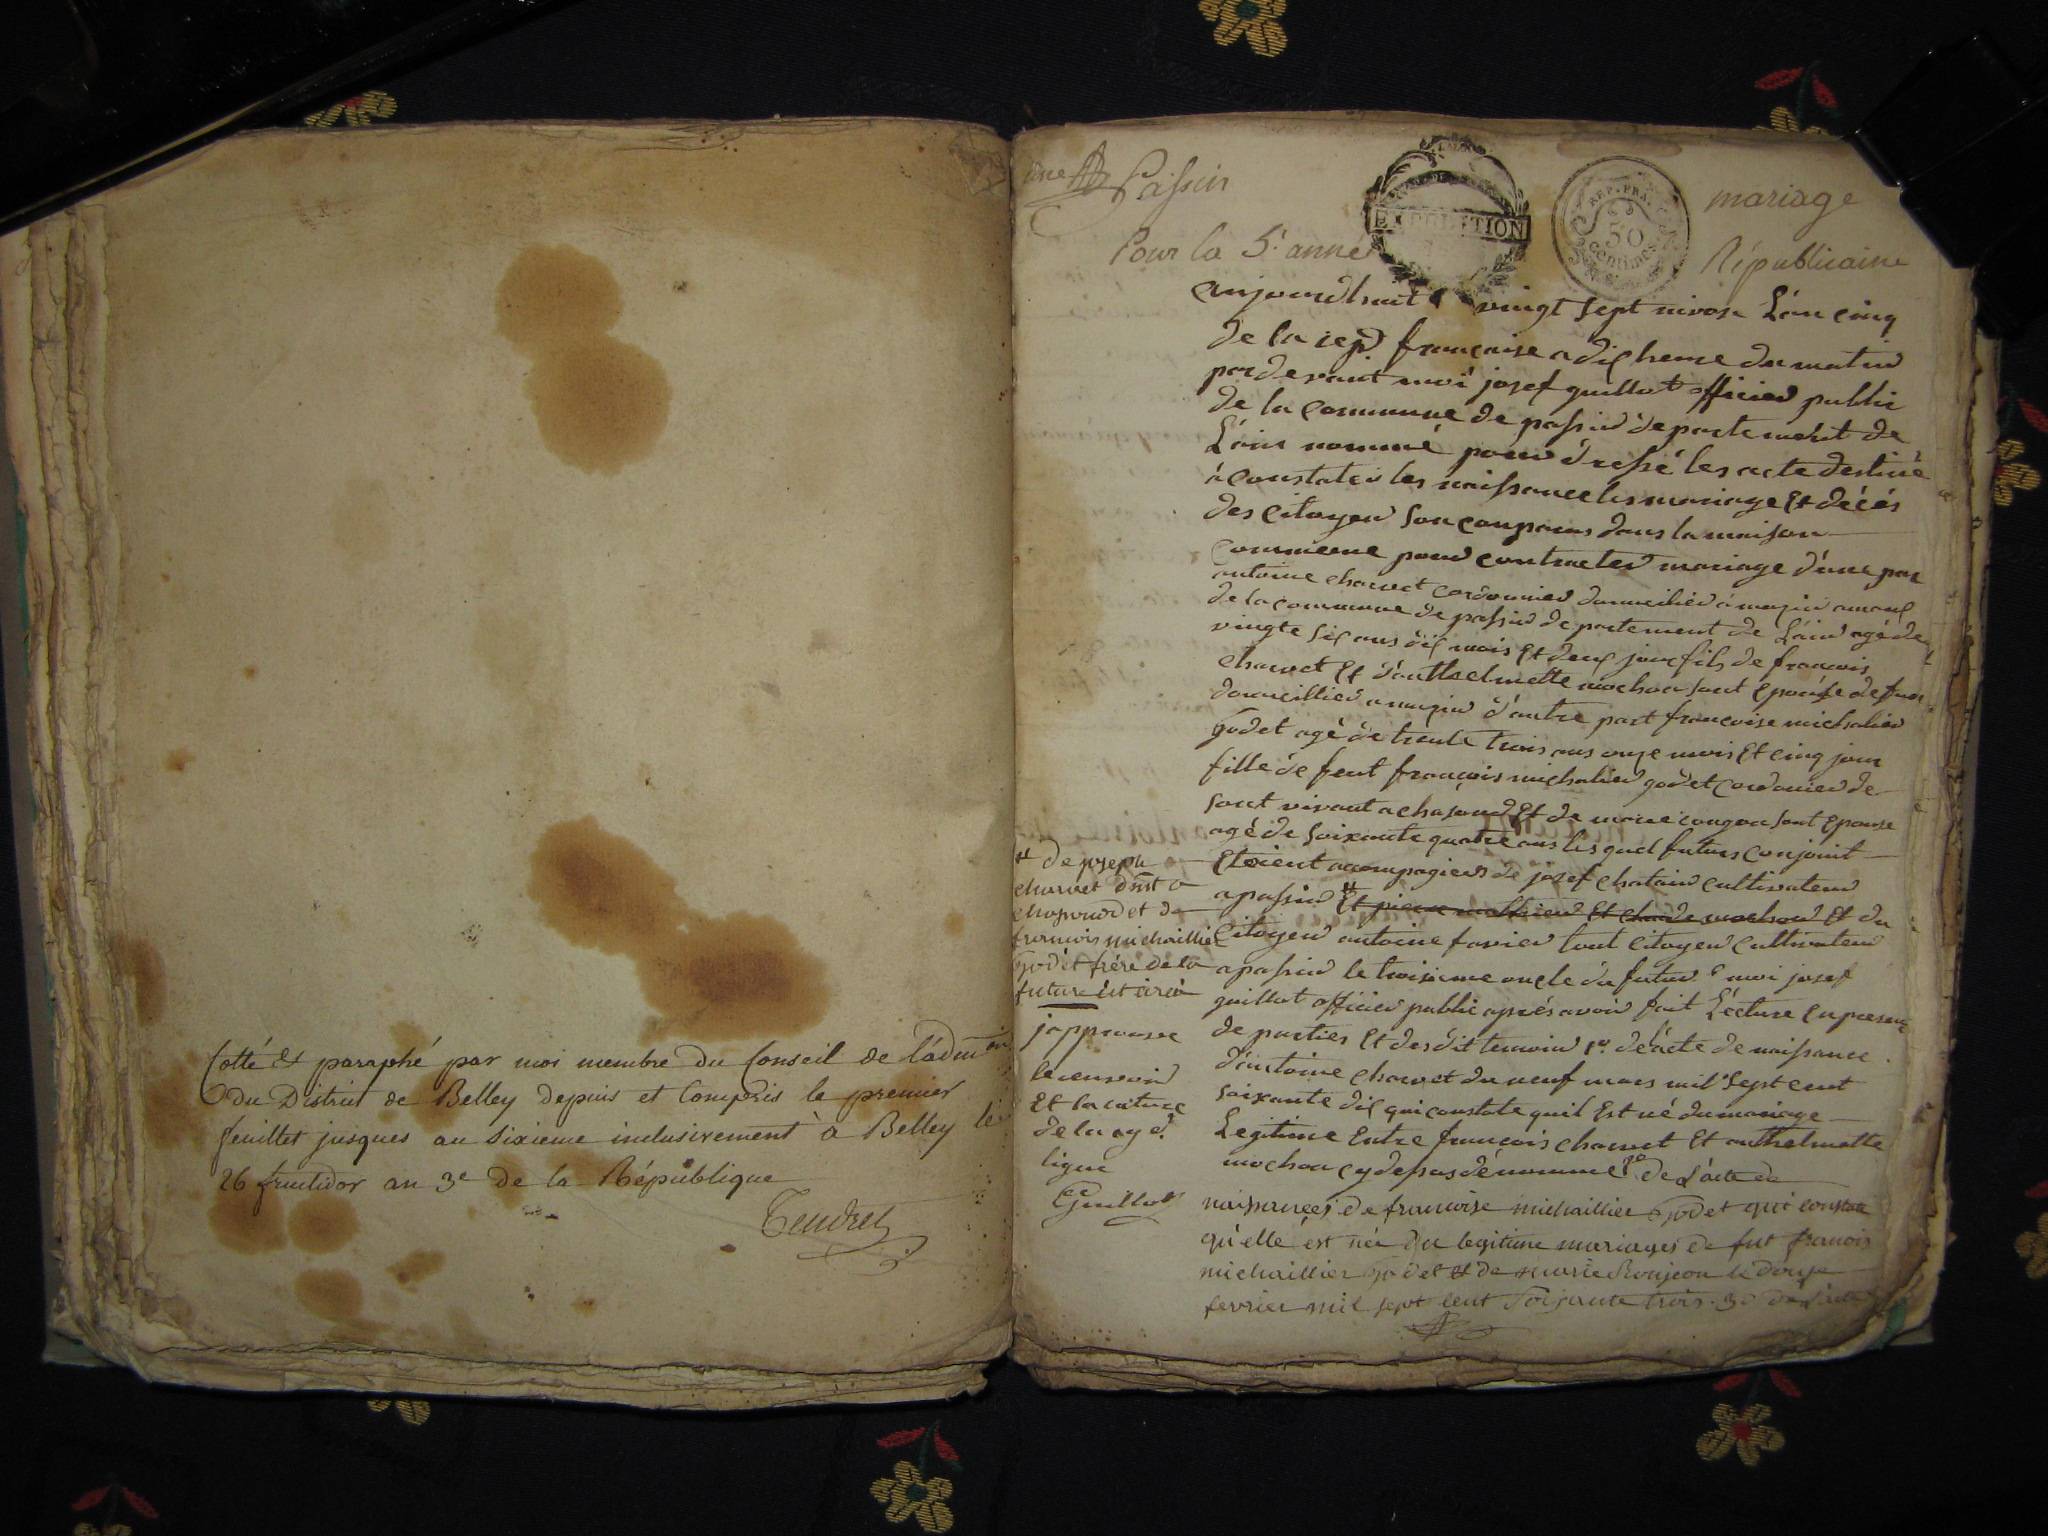 Cotté et paraphé par moi membre du Conseil de l'adm.on
du District de Belley depuis et Compris le premier
feuillet jusques au sixieme inclusivement à Belley le
26 fructidor an 3e de la République
Tendret
Passin
mariage
EXPEDITION
REP. FRA.
50
centimes
Pour la 5e année
Républicaine
aujourdhuit vingt sept nivose L'an cinq
de la rep francaise a dix heure du matin
pardevant moi josef guillot officier public
de la commune de passin departement de
L'ain nommé pour dressé les acte destiné
à constater les naissance les mariage Et décés
des citoyen son comparus dans la maison
commune pour contracter mariage d'une par
antoine charvet cordonnier domicilier à
de la commune de passin departement de L'ain agé de
vingte six ans dix mois Et deux jour fils de francois
charvet Et d'anthelmette mochon sont epouse
domicillier d'autre part francoise michalier
godet agé de trente trois ans onze mois Et cinq jour
fille de feut francois michalier godet cordonier de
sont vivant a Et de marie sont epouse
agé de soixante quatre ans les quel futurs conjoint
Etoient accompagiers de josef chatain cultivateur
a passin Et pierre mathieu Et claude mochon Et du
citoyen antoine favier tout citoyen cultivateur
a passin le troisieme oncle du futur moi josef
guillot officier public aprés avoir fait Lécture en presence
de parties Et des dit temoin 1er de lacte de naissance
d'antoine charvet du neuf mars mil sept cent
soixante dix qui constate quil Est né du mariage
Legitime Entre francois charvet Et anthelmette
mochon cy denommé 2e de L'acte de
naissances de francoise michaillier godet qui constate
qu'elle est née du legitime mariages de fut francois
michaillier godet et de marie le douze
fevrier mil sept cent soixante trois. 3e de l'acte
et de joseph
charvet
et de
francois michaillier
godet frère de la
future
japprouve
le renvoid
Et la rature
de la
ligne
Guillot